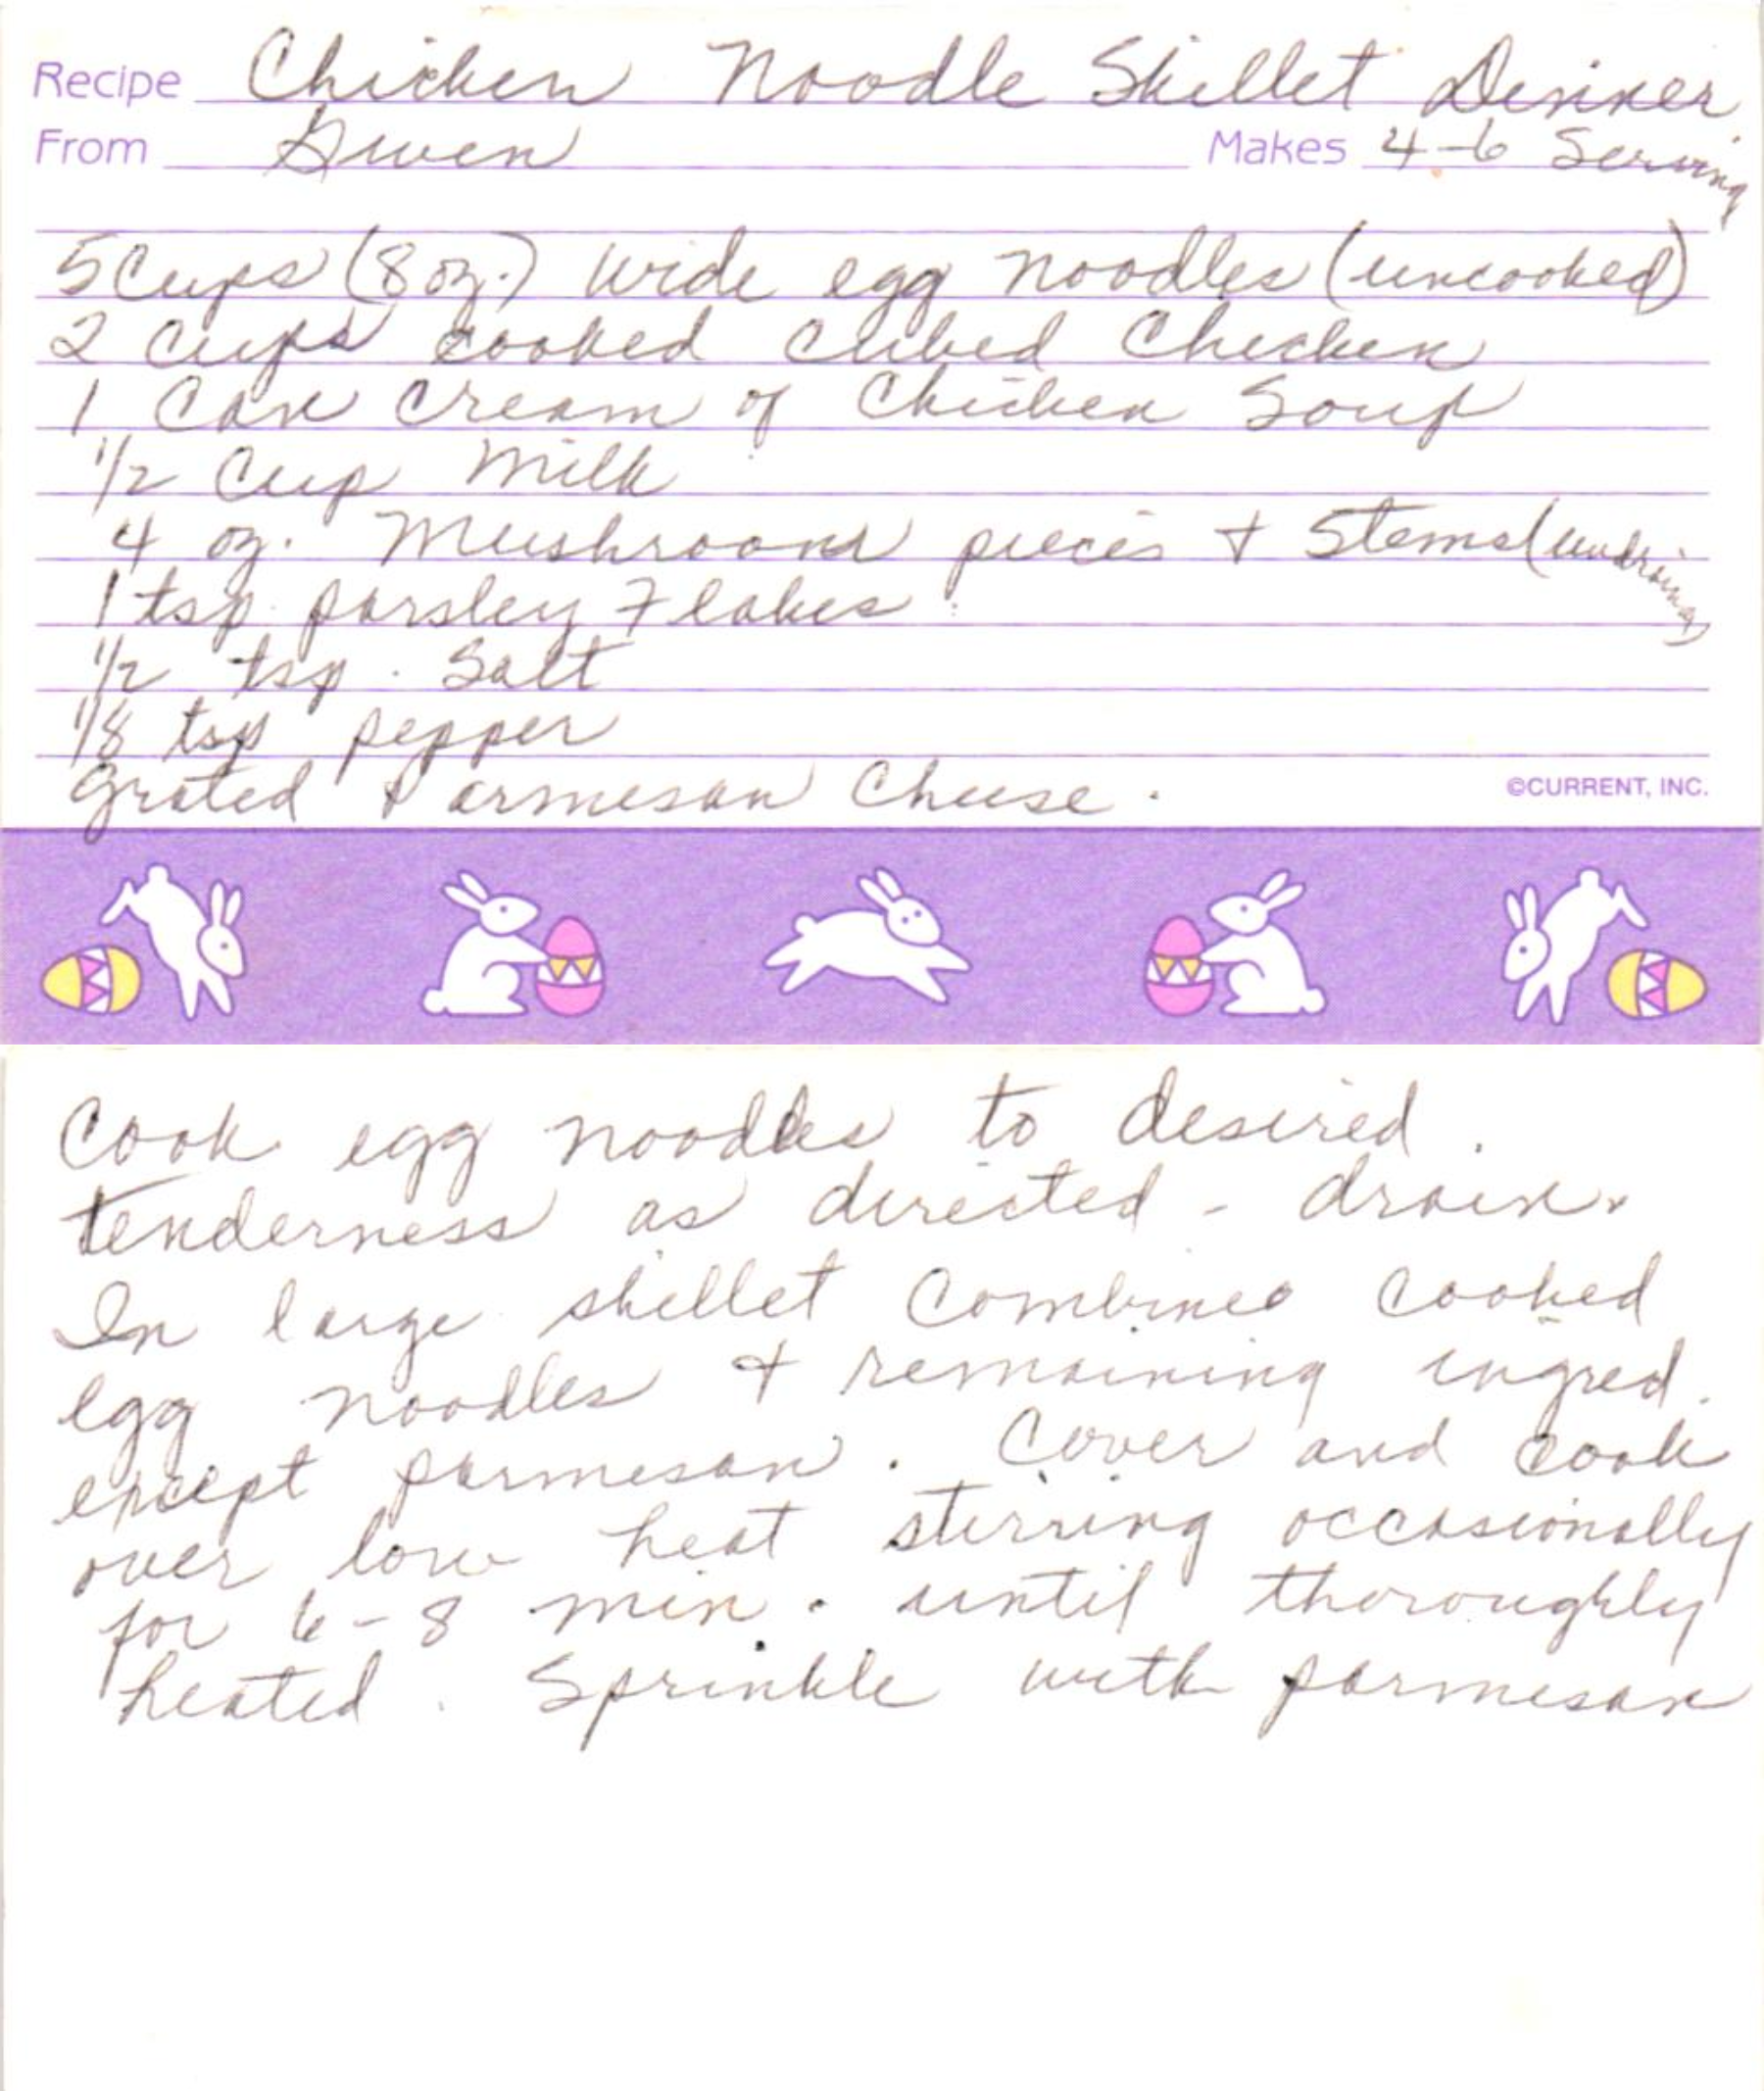 Recipe Chicken Noodle Skillet Dinner
From Gwen Makes 4-6 Serving
5 Cups (8 oz.) wide egg noodles (uncooked)
2 Cups cooked cubed Chicken
1 Can Cream of Chicken Soup
1/2 Cup Milk
4 oz. Mushroom pieces + Stems (undraing)
1 tsp. parsley Flakes
1/2 tsp. Salt
1/8 tsp pepper
grated Parmesan Cheese.
©CURRENT, INC.
Cook egg noodles to desired
tenderness as directed - drain.
In large skillet Combine cooked
egg noodles + remaining ingred.
except parmesan. Cover and cook
over low heat stirring occasionally
for 6-8 min. until thoroughly
heated. Sprinkle with parmesan